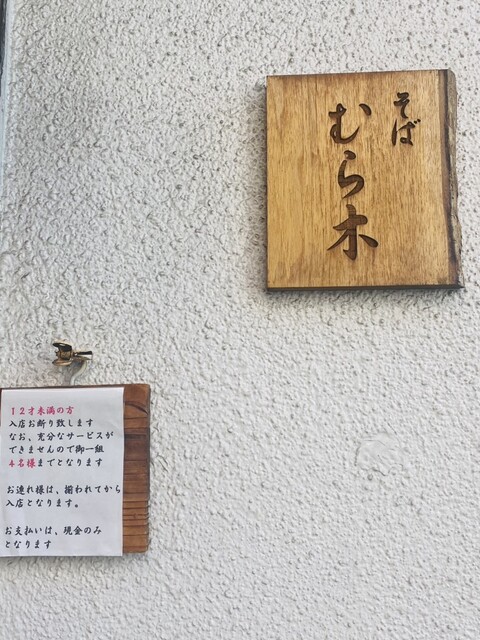 そば
むら木
12才未満の方
入店お断り致します
なお、充分なサービスが
できませんので御一組
4名様までとなります
お連れ様は、揃われてから
入店となります。
お支払いは、現金のみ
となります